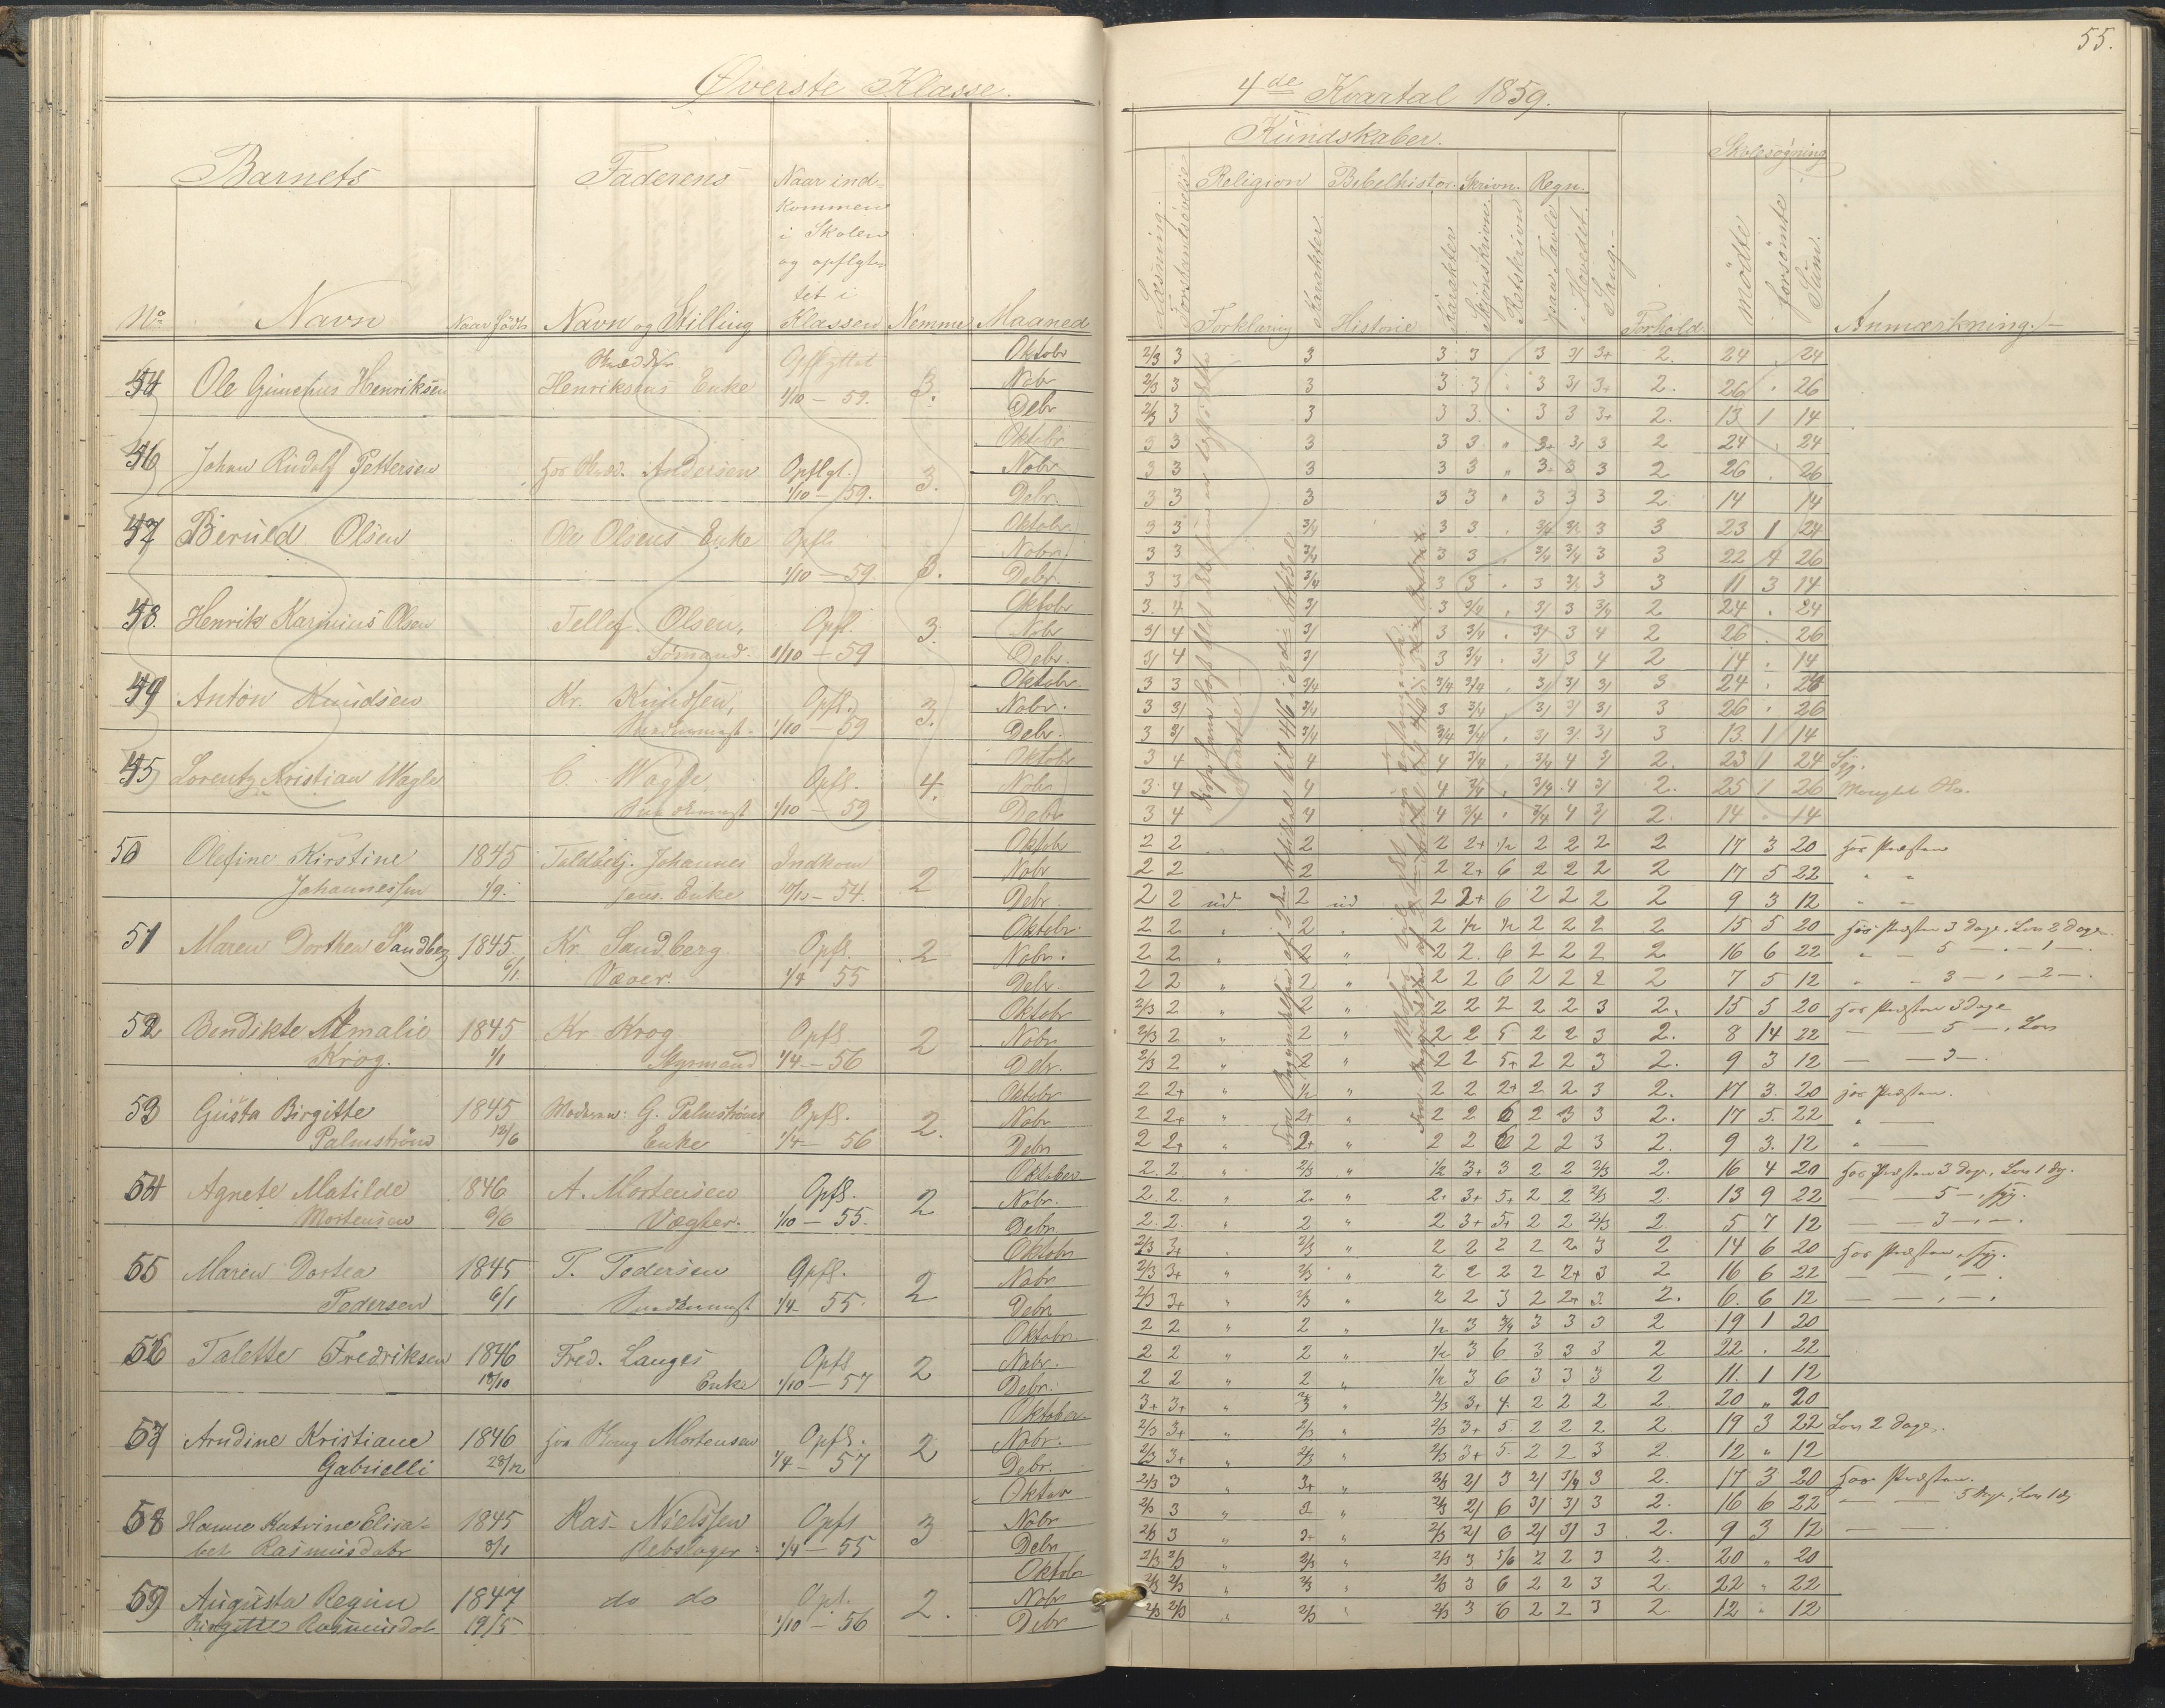 55.
Øverste Klasse.
4de Kvartal 1859.
Barnets
Faderens
Naar ind-
kommen
i Skolen
og opflyt-
tet i
Klassen
No
Navn
Naar født
Navn og Stilling
Nemme
Maaned
Kundskaber.
Læsning.
Forstandsøvelse
Religion
Forklaring
Karakter
Bibelhistor.
Historie
Karakter
Skrivn.
Skjönskrivn.
Retskrivn
Regn.
paa Tavle
i Hovedet.
Sang.
Forhold.
Skolesøgning
Mödte
forsömte
Sum.
Anmærkning.
Oktobr
Nobr
Debr
Henriksens Enke
Opflyttet
1/10 - 59.
3.
2/3 3 3 3 3 3 3/ 3+ 2. 24 . 24
2/3 3 3 3 3 3 3/ 3+ 2. 26 . 26
2/3 3 3 3 3 3 3 3+ 2. 13 1 14
46 Johan Rudolf Pettersen
Andersen Opflgt.
1/10 - 59. 3.
3 3 3 3 3 " 3+ 3/ 3 2 24 . 24
3 3 3 3 3 " 3+ 3 3 2 26 . 26
3 3 3 3 3 " 3 3 3 2. 14 14
47 Beruld Olsen
Ole Olsens Enke Opfl.
1/10 - 59. 3.
3 3 3/4 3 3 . 3/4 3/4 3 3 23 1 24
3 3 3/4 3 3 . 3/4 3/4 3 3 22 4 26
3 3 3/4 3 3 . 3 3/4 3 3 11 3 14
48. Henrik Karinius Olsen
Tellef Olsen, Opfl.
Sømand. 1/10 - 59 3.
3. 4 3/ 3 3/4 . 3/ 3 3/4 2 24 . 24
3/ 4 3/ 3 3/4 . 3/ 3 4 2 26 . 26
3/ 4 3/ 3 3/4 . 3/ 3 4 2 14 . 14
49 Anton Knudsen
Kr. Knudsen, Opfl.
1/10 - 59 3.
3 3 3/4 3/4 3/4 . 3/ 3/ 3/ 3 24 .
3 3/ 3/4 3 3/4 . 3/ 3/ 3/ 3 26 . 26
3 3/ 3/4 3/4 3/4 . 3/ 3/ 3/ 3 13 1 14
45 Lorentz Kristian Wagle
C. Wagle, Opfl.
1/10 - 59 4.
3 4 4 4 3/4 . 3/4 4 3/ 2. 23 1 24 Syg.
3 4 4 4 3/4 . 3/4 4 3/ 2. 25 1 26
3 4 4 4 3/4 . 3/4 4 3/ 2. 14 . 14
50 Olefine Kirstine 1845
Johannessen 1/9.
Johannes Indkom
sens. Enke 10/10 - 54. 2
2 2 2 2 2+ 1/2 2 2 2 2 17 3 20 hos Præsten
2 2 2 2 2+ 6 2 2 2 2 17 5 22 " "
2 2 ud 2 ud 2 2+ 6 2 2 2 2 9 3 12 " "
51 Maren Dorthea Sandberg 1845
6/1.
Kr. Sandberg Opfl.
Væver. 1/4 55 2
2 2 " 2 . 2 1/2 1/2 2 2 2 2 15 5 20 hos Præsten 3 Dage, Lov 2 Dage.
2 2 " 2 " 2 2. 6 2 2 2 2 16 6 22 " - 5 - " - 1 -
2 2 " 2 " 2 2 6 2 2 2 2 7 5 12 " - 3 - " - 2 -
52 Bendikte Amalie 1845
Krog. 1/1
Kr Krog Opfl.
Styrmand 1/4 - 56 2
2/3 2 " 2 " 2 2 2 2 2 3 2. 15 5 20 hos Præsten 3 Dage
2/3 2 " 2 " 2 2 5 2 2 3 2. 8 14 22 - - 5 -, Lov
2/3 2 " 2 " 2 2 5+ 2 2 3 2. 9 3 12 - - 3 -
53 Gusta Birgitte 1845
Palmstrøm 12/6
Moderen: G. Palmstrøms Opfl.
Enke 1/4 - 56 2.
2 2+ " 1/2 " 2 2 2+ 2 2 3 2. 17 3. 20 hos Præsten.
2 2+ " 2+ " 2 2 6 2 3 3 2. 17 5. 22 " -
2 2+ " 2+ " 2 2 6 2 2 3 2. 9 3. 12 " -
54 Agnete Matilde 1846
Mortensen
A. Mortensen Opfl.
Vægter. 1/10 - 55. 2
2. 2 " 2/3 " 1/2 3+ 3 2 2 2/3 2. 16 4 20 hos Præsten 3 Dage, Lov 1 Dag.
2. 2. " 2. " 2. 3+ 5+ 2 2 2/3 2. 13 9 22 - - 5 -, Syg.
2. 2. " 2 " 2 3+ 5+ 2 2 2/3 2 5 7 12 - - 3 -, -.
55 Maren Dortea 1845
Pedersen 6/1
T. Pedersen Opfl.
1/4 55. 2
2/3 3+ . 2/3 " 2 2 2 2 2 3 2 14 6 20 hos Præsten, Syg.
2/3 3+ " 2/3 . 2 2 2 2 2+ 3 2 16 6 22 - - , -.
2/3 3+ " 2/3 " 2 2 3 2 2+ 3. 2. 6. 6 12 - - , -.
56 Talette Fredriksen 1846
13/10
Fred. Langes Opfl
Enke 1/10 - 57 2
2 2 " 2 " 1/2 3 3/4 3 3 3 2 19 1 20
2 2 " 2 " 1/2 3 6 3 3 3 2 22 . 22
2 2 " 2 " 1/2 3 6 3 3 3 2 11. 1 12
57 Arndine Kristiane 1846
Gabrielli 28/12
Mortensen Opfl.
1/4 - 57 2
3+ 3+ " " 2/3 3+ 4. 2 2 2 2 20 " 20
2/3 3+ " 2/3 " 2/3 3+ 5. 2 2 2 2 19 3 22 Lov 2 Dage.
2/3 3+ " 2/3 " 2/3 3+ 5. 2 2 3 2. 12 " 12
58 Hanne Katrine Elisa- 1845
bet Rasmusdatr 3/1
Ras. Nielsen Opfl
Rebslager. 1/4 - 55 3
2/3 3 " 3+ " 2/3 2/ 3 2/ 3/4 3 2. 17 3 20 hos Præsten.
2/3 3 " " 2/3 2/ 6 3/ 3/ 3 2. 16 6 22 " - 5 Dage, Lov 1 Dg
2/3 3 " " 2/3 2/ 6 2/ 3/ 3 2. 9 3 12 -
59 Augusta Regine 1847
Birgitte Rasmusdatr 19/5
do do Opfl.
1/10 - 56 2.
2/3 2/3 " 2/3 " 2/3 3 5/6 2 2 3 2. 20 " 20
2/3 2/3 " 2/3 " 2/3 3 6 2 2 3 2. 22 " 22
2/3 2/3 " 2/3 " 2/3 3 6 2 2 3 2. 12 " 12